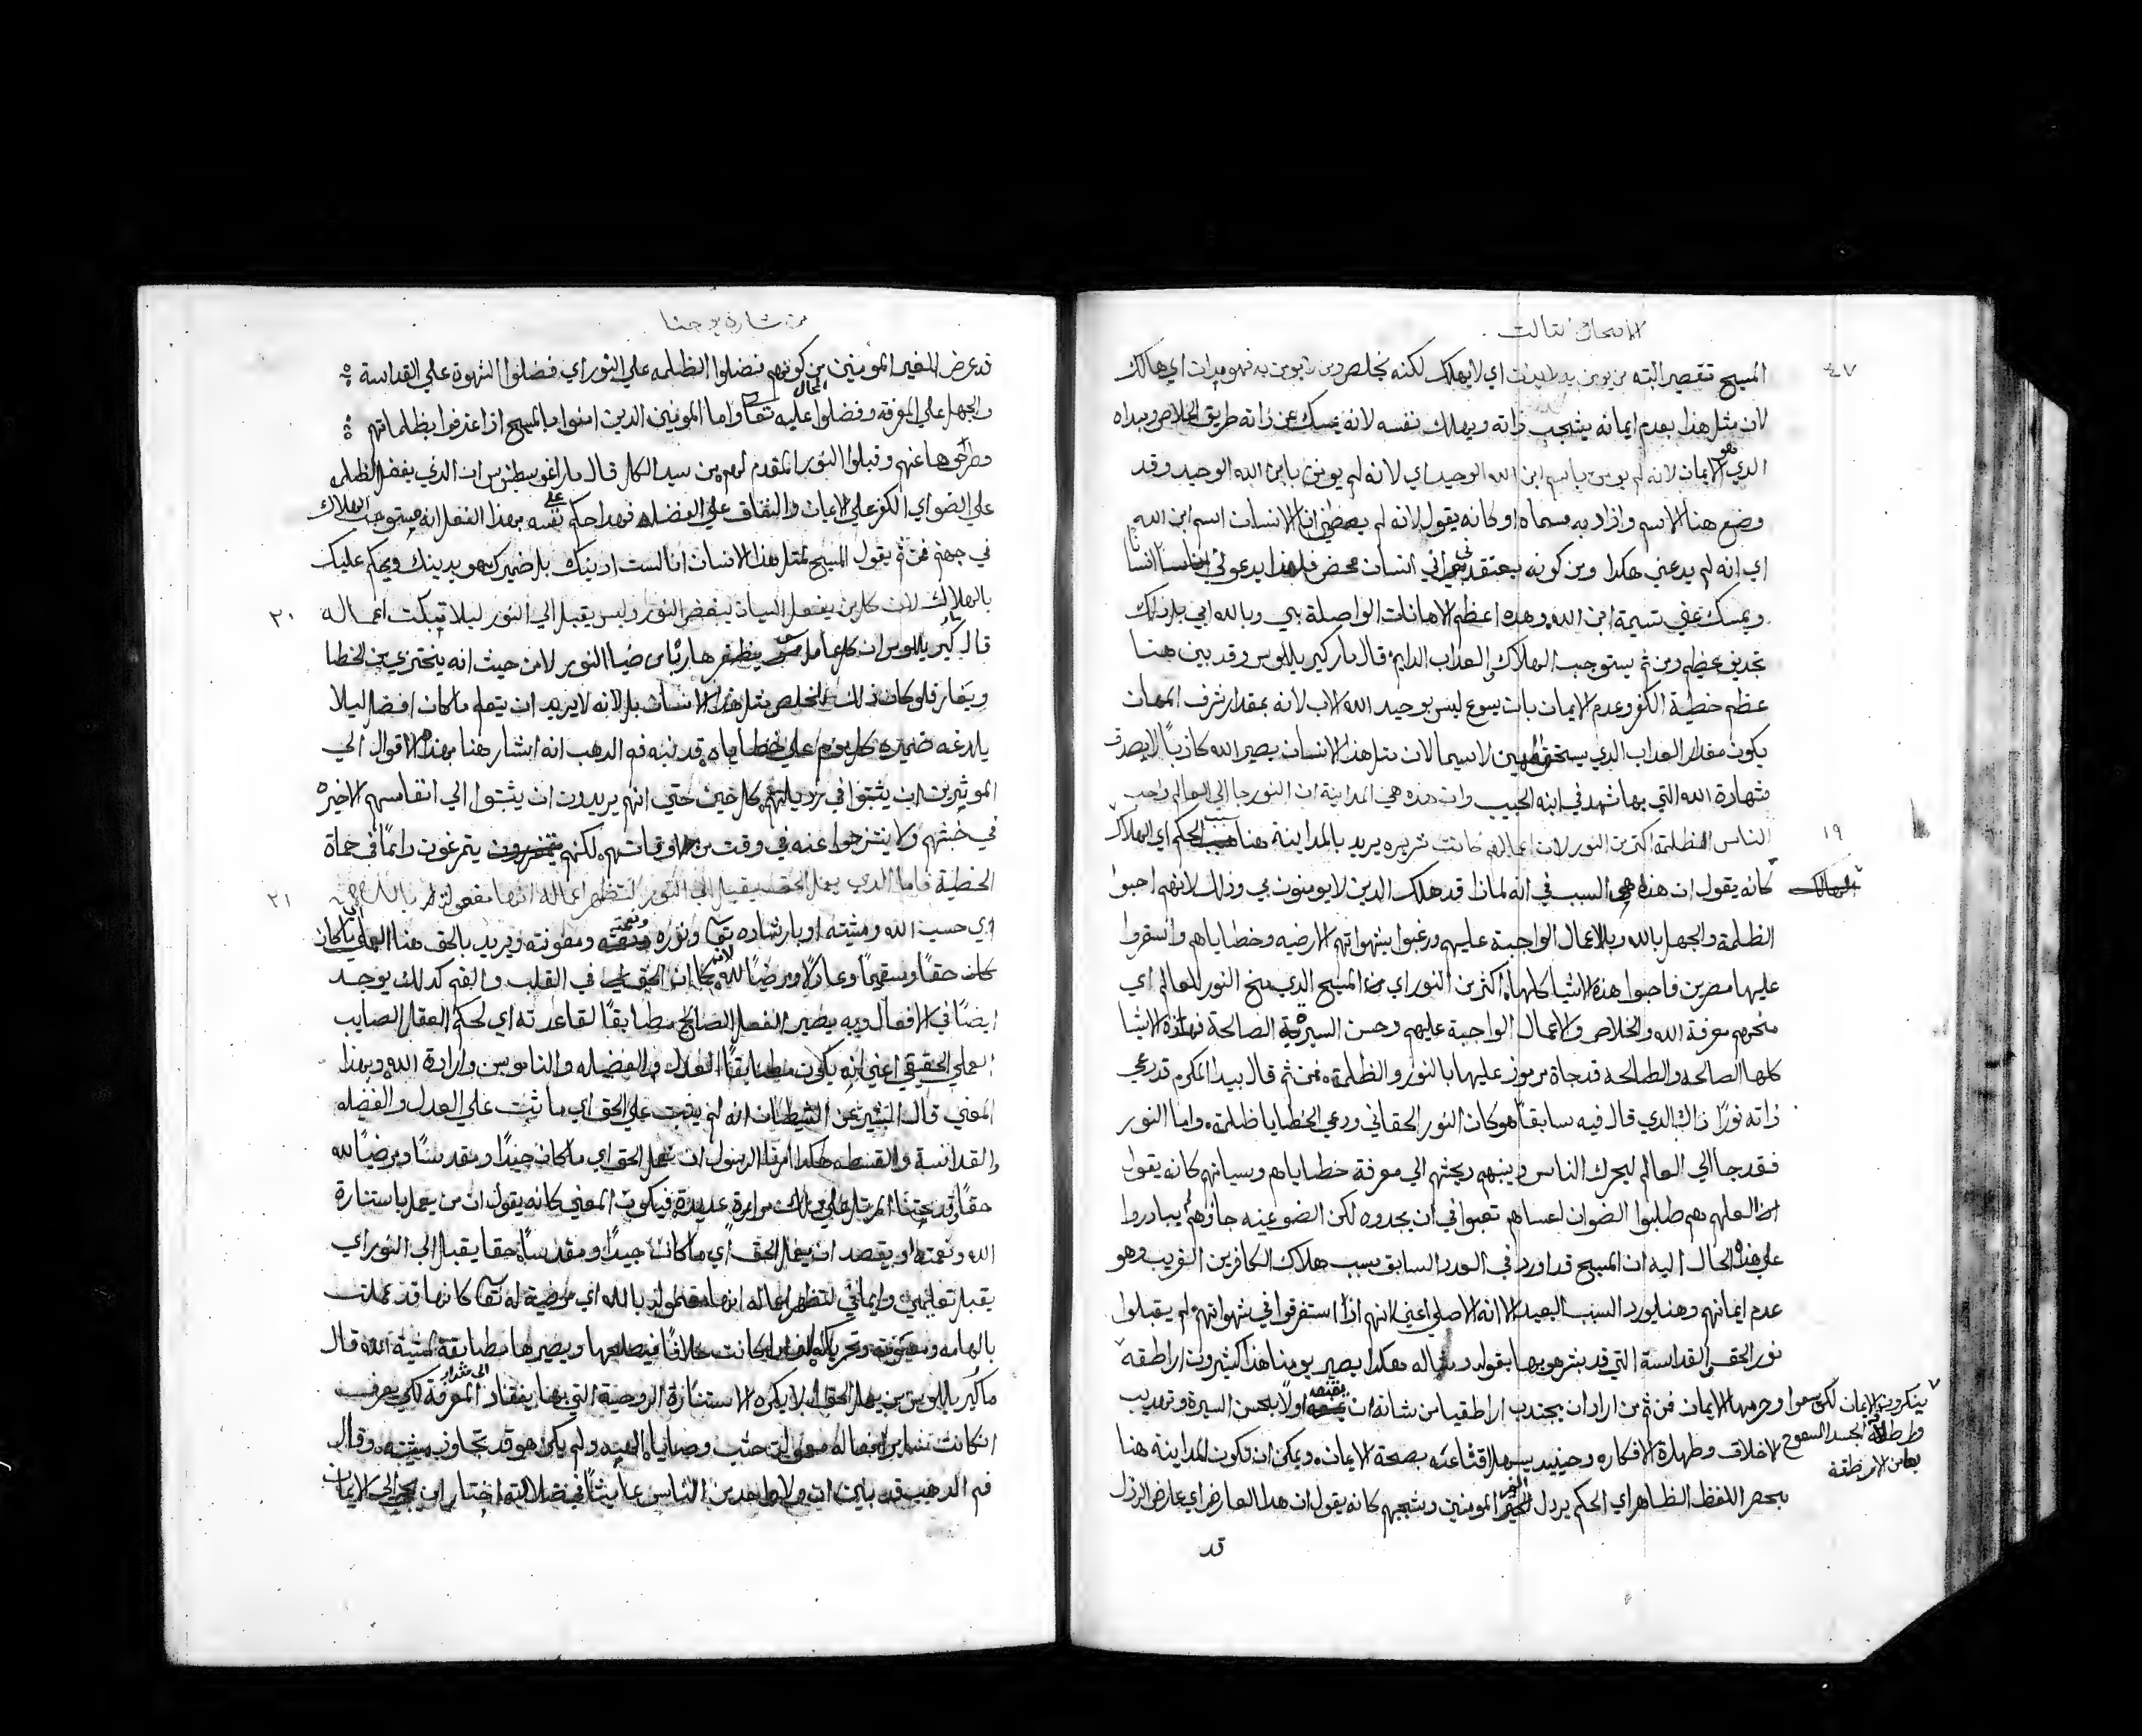 الاصحاح الثالث
٤٧
المسيح تقصير البته من يومن به لا يدان اي لا يهلك لكنه يخلص ومن لا يومن به فهو مدان اي هالك
لان مثل هذا بعدم ايمانه يشجب ذاته ويهلك نفسه لانه يمسك عن ذاته طريق الخلاص ومبداه
الذي هو الايمان لانه لم يومن باسم ابن الله الوحيد اي لانه لم يومن بابن الله الوحيد وقد
وضع هنا الاسم واراد به مسماه او كانه يقول لانه لم يعطني انا الانسان اسم ابن الله
اي انه لم يدعني هكذا ومن كونه يعتقد في اني انسان محض فلهذا يدعوني انسانا
ويمسك عني تسمية ابن الله وهذه اعظم الاهانات الواصلة بي وبالله ابي بل ذلك
تجديف عظيم ومن ثم يستوجب الهلاك والعذاب الدايم قال مار كيرياللوس وقد بين هنا
عظم خطية الكفر وعدم الايمان بان يسوع ليس هو وحيد الله الاب لانه بمقدار شرف المهان
يكون مقدار العذاب الذي يستحقه المهين لاسيما لان مثل هذا الانسان يصير الله كاذبًا لا يصدق
شهادة الله التي بها شهد في ابنه الحبيب وان هذه هي المداينة ان النور جا الي العالم واحب
١٩
الناس الظلمة اكثر من النور لان اعمالهم كانت شريره يريد بالمداينة هنا سبب الحكم اي الهلاك
كانه يقول ان هذا هو السبب في انه لماذا قد هلك الذين لا يومنون بي وذلك لانهم احبوا
الظلمة والجهل بالله وبالاعمال الواجبة عليهم ورغبوا بشهواتهم الارضيه وخطاياهم واستمروا
عليها مصرين فاحبوا هذه الاشيا كلها اكثر من النور اي من المسيح الذي منح النور للعالم اي
منحهم معرفة الله والخلاص والاعمال الواجبة عليهم وحسن السيرة الصالحة فهذه الاشيا
كلها الصالحه والطالحه قد جاة مرموز عليها بالنور والظلمة فمن ثم قال بيدا المكرم قد دعي
ذاته نورًا ذاك الذي قال فيه سابقًا هو كان النور الحقاني ودعي الخطايا ظلمة واما النور
فقد جا الي العالم ليحرك الناس وينبههم ويحثهم الي معرفة خطاياهم وسياتهم كانه يقول
لعلهم هم طلبوا الضو ان لعساهم تعبوا في ان يجدوه لكن الضو عينه جاوهم لم يبادروا
علي هذا الحال اليه ان المسيح قد اورد في العدد السابق سبب هلاك الكافرين القريب وهو
عدم ايمانهم وهنا يورد السبب البعيد الا انه الاصلي اعني انهم اذا استغرقوا في شهواتهم لم يقبلوا
نور الحق والقداسة التي قد بشرهم بها بقوله ومثاله هكذا يصير يومنا هذا كثيرون اراطقة
ينكرون الايمان لكي يسعوا وحرمها الايمان فمن ثم من اراد ان يجتذب اراطقيا من شانه ان اولا بحسن السيرة وتهذيب
الاخلاق وطهارة الافكار وحينيذ يسهل اقناعه بصحة الايمان ويمكن ان تكون المداينة هنا
بحصر اللفظ الظاهر اي الحكم يرذل الغير المومنين ويشجبهم كانه يقول ان هذا العارض اي عارض الرذل
قد
من بشارة يوحنا
قد عرض للغير المومنين من كونهم فضلوا الظلمه علي النور اي فضلوا الشهوة علي القداسة
والجهل علي المعرفه وفضلوا المحال عليه تعا واما المومنين الذين امنوا بالمسيح اذ اعترفوا بظلماتهم
وطرحوها عنهم وقبلوا النور المقدم لهم من سيد الكل قال مار اغوسطينوس ان الذي يفضل الظلمه
علي الضو اي الكفر علي الايمان والنفاق علي الفضله فهذا حكم علي نفسه بهذا الفعل انه مستوجب الهلاك
في جهنم فمن ثم يقول المسيح لمثل هذا الانسان انا لست ادينك بل ضميرك هو يدينك ويحكم عليك
٢٠
بالهلاك لان كل من يفعل السيات يبغض النور وليس يقبل الي النور ليلا تبكت اعماله
قال كيرياللوس ان كل عامل سو يظهر هاربًا من ضيا النور لا من حيث انه يختزي من الخطا
ويغار فلو كان ذلك لخلص مثل هذا الانسان بل لانه لا يريد ان يتعلم ما كان افضل ليلا
يلدغه ضميره كل يوم علي خطاياه قد نبه فم الذهب انه اشار هنا بهذه الاقوال الي
الموثرين ان يثبتوا في رذيلتهم كل حين حتي انهم يريدون ان يثبتوا الي انفاسهم الاخيره
في خبثهم ولا ينتزحوا عنه في وقت من الاوقات لكنهم يتمرغون دايمًا في حماة
٢١
الخطية فاما الذي يعمل الحق يقبل الي النور لتظهر اعماله انها مفعولة بالله
اي حسب الله ومشيته او بارشاده تعا ونوره ونعمته ومعونته ويريد بالحق هنا العملي ما كان
كان حقًا ومستقيمًا وعادلًا ومرضيًا لله لانه كما ان الحق في القلب والفم كذلك يوجد
ايضًا في الافعال وبه يصير الفعل الصالح مطابقًا لقاعدته اي لحكم العقل الصايب
العملي الحقيقي اعني انه يكون مطابقًا العدل والفضيله والناموس وارادة الله وبهذا
المعني قال البشير عن الشيطان انه لم يثبت علي الحق اي ما ثبت علي العدل والفضله
والقداسة والقسط هكذا امرنا الرسول ان نعمل الحق اي ما كان جيدًا ومقدسًا ومرضيًا لله
حقًا وقد يحثنا المرتل علي ذلك مرارة عديدة فيكون المعني كانه يقول ان من يعمل باستنارة
الله ونعمته او يقصد ان يعمل الحق اي ما كان جيدًا ومقدسًا حقا يقبل الي النور اي
يقبل تعليمي وايماني لتظهر اعماله انها مفعولة بالله اي مرضية له تعا كانها قد عملت
بالهامه ومعونته وتحريكه او ان كانت خلافًا فيصلحها ويصيرها مطابقة لمشية الله قال
مار كيرياللوس من يعمل الحق لا يكره الاستنارة الروحية التي بها ينقاد الي مقدار المعرفة لكي يعرف
ان كانت تتم افعاله معمولة حسب وصايا الله ولم يكن هو قد تجاوز مشيته وقال
فم الذهب قد باين ان ولا واحد من الناس عايشًا في ضلالته اختار ان يجي الي الايمان